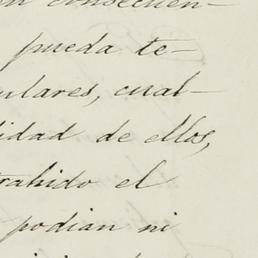 consecuen-
pueda te-
ulares, cual-
idad de ellos,
trahido el
podian ni